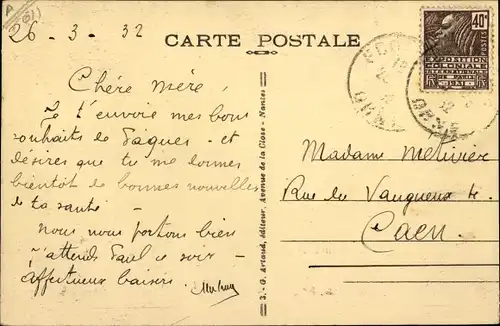 26-3-32
CARTE POSTALE
Chère mère,
Je t'envoie mes bons
souhaits de Pâques - et
désires que tu me donnes
bientôt de bonnes nouvelles
de ta santé -
nous nous portons bien
J'attends Paul ce soir -
affectueux baisers.
3. - G. Artaud, éditeur, Avenue de la Close - Nantes
40c
POSTES
EXPOSITION
COLONIALE
INTERNATIONALE
DE PARIS
1931
ORNE
Madame Metivier
Rue du Vaugueux 4.
Caen.